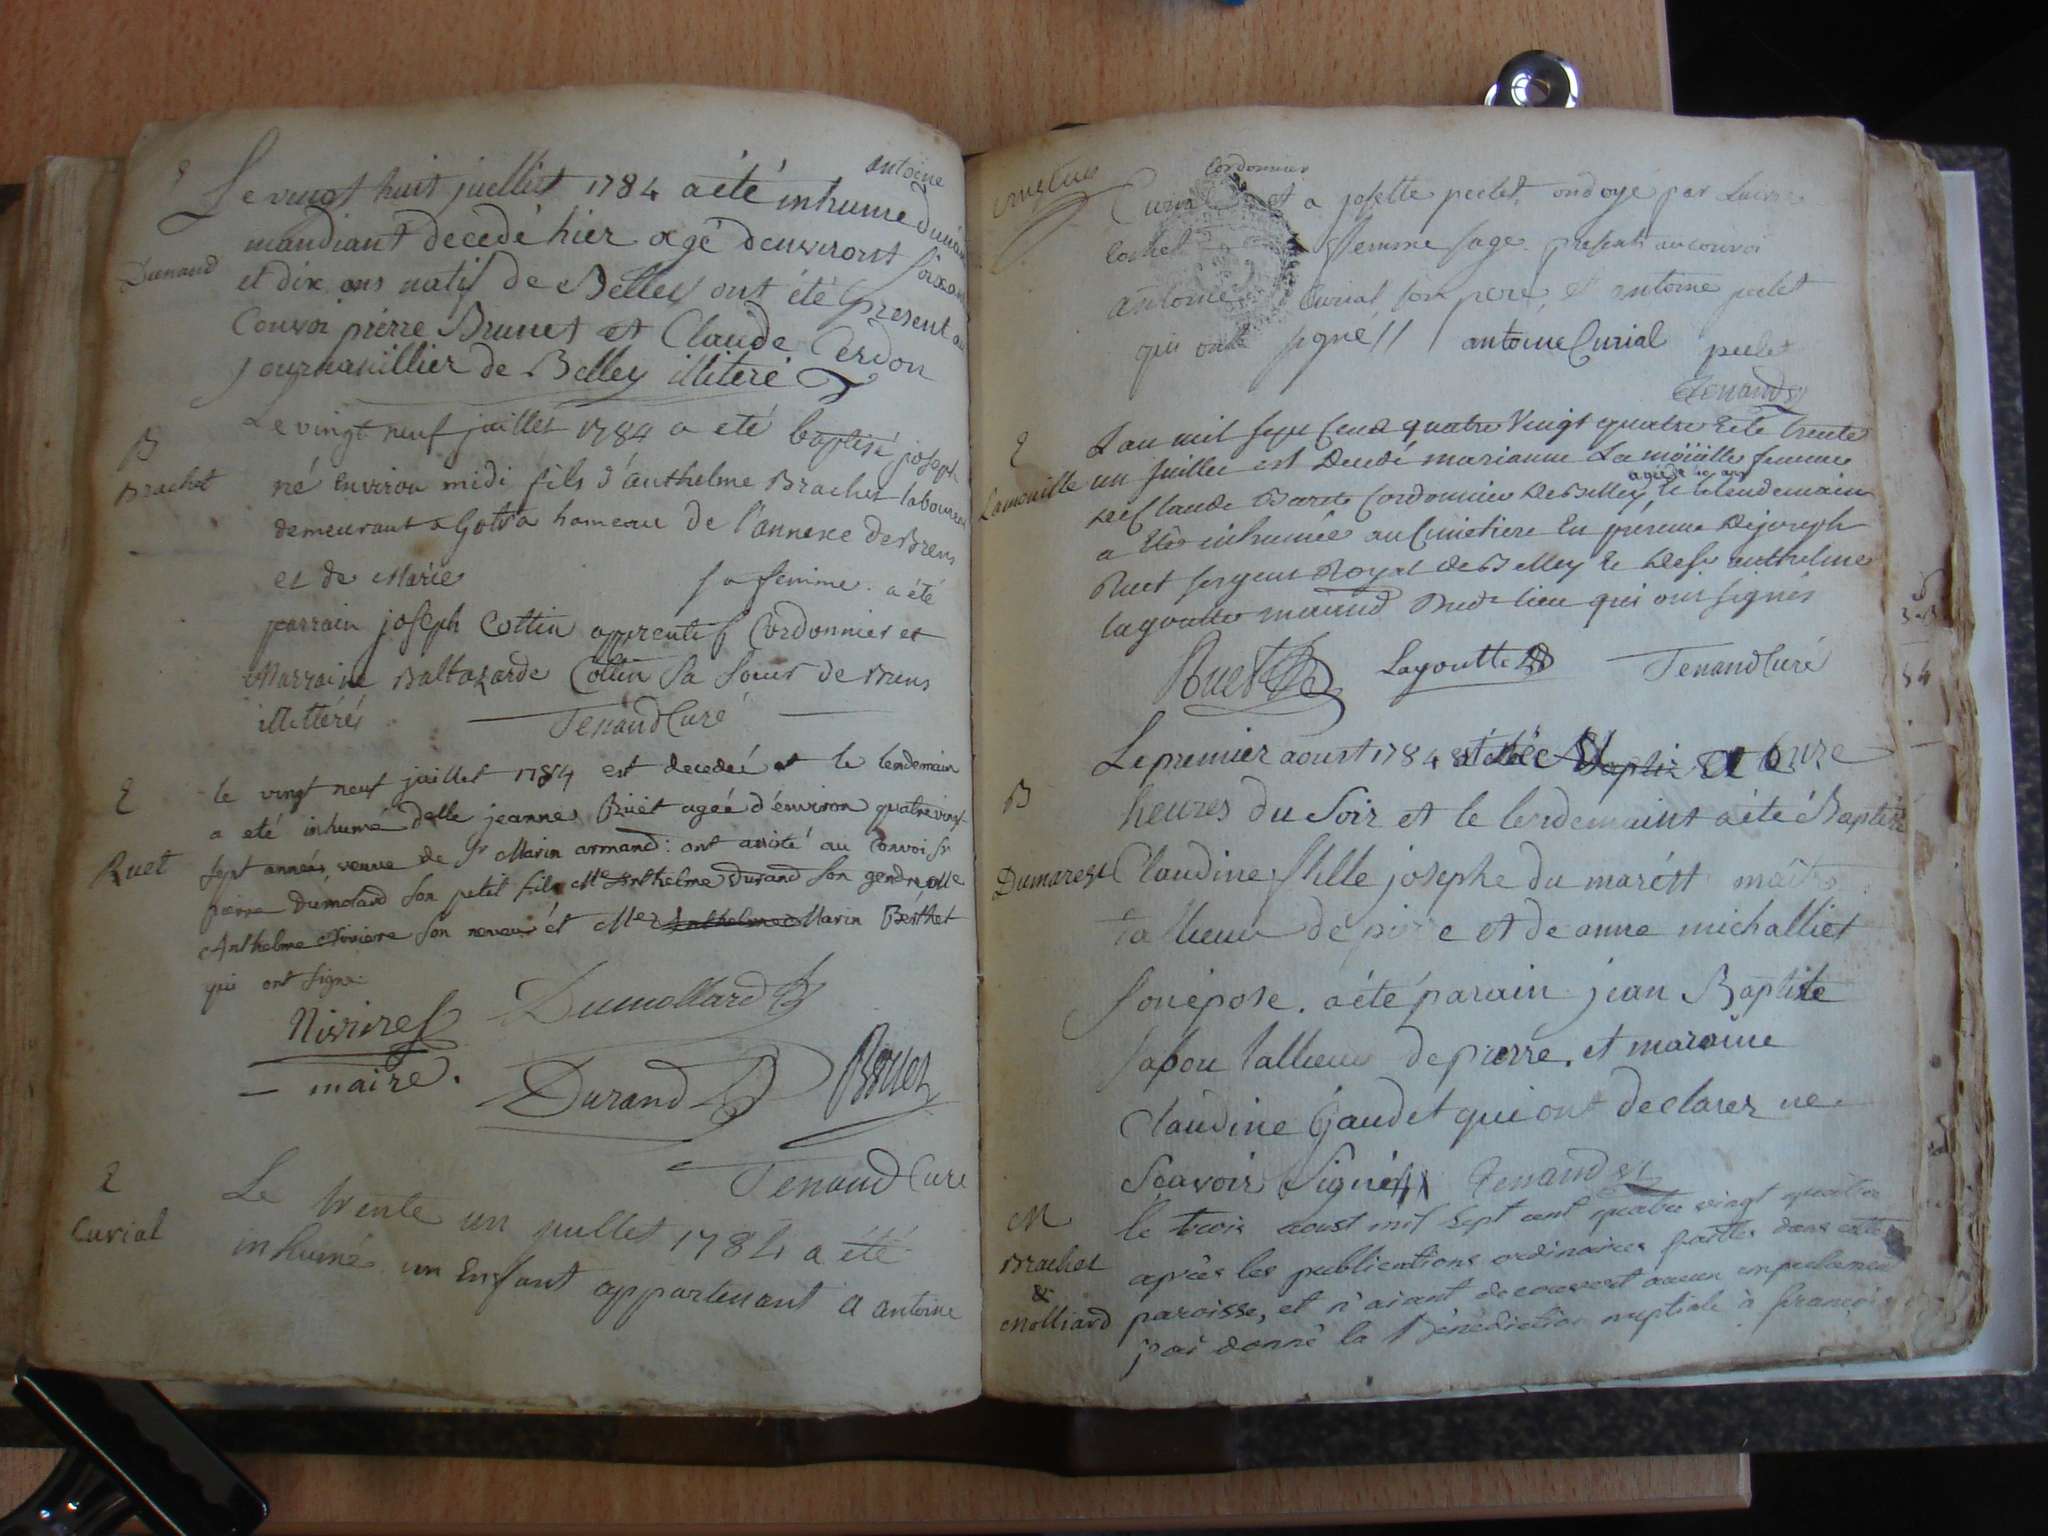 S
Le vingt huit juellist 1784 a été inhume antoine dunan
Dunand
mandiant decedé hier agé d'environt soixant
et dix ans natif de Belley ont été present au
Convoi pierre Brunet et Claude Cerdon
journanillier de Belley illiteré
B
Brachet
Le vingt neuf juillet 1784 a eté baptisé joseph
né environ midi fils d'anthelme Brachet laboureur
demeurant a hameau de l'annexe de Brens
et de Marie sa femme. a été
parrain joseph Cottin apprentif Cordonnier et
Marraine Baltazarde Cottin sa soeur de Brens
illettérés Tenand Curé
S
Ruet
le vingt neuf juillet 1784 est decedeé et le lendemain
a eté inhumé delle jeanne Ruet ageé d'environ quatre vingt
sept années veuve de Sr Marin armand: ont assisté au Convoi Sr
pierre Dumolard son petit fils Me Anthelme Durand son gendre Me
Anthelme Niviere son neveu et Me Anthelme Marin Berthet
qui ont signe
Dumollard
Nivriere
maire.
Durand
Tenand Curé
S
Curial
Le trente un juillet 1784 a été
inhumé un Enfant appartenant a antoine
Cordonnier
Curial et a josette peclet, ondoyé par
femme sage. presents au convoi
antoine Curial son pere, et antoine peclet
qui ont signé // antoine Curial peclet
Tenand
S
Lamouille
L'an mil sept Cent quatre Vingt quatre Et le trente
un juillet est decedé marianne La moüille femme
de Claude Cordonnier de Belley agée de ans et le lendemain
a Eté inhumée au Cimetiere En présence de joseph
Ruet sergent Royal de Belley et de Sr anthelme
lagoutte marchand dudt lieu qui ont signés
Ruet Lagoutte Tenand Curé
B
Dumarest
Le premier aoust 1784 est née a onze
heures du Soir et le lendemaint a été Baptisé
Claudine fille josephe du marest maitre
tallieur de pierre et de anne michalliet
son épose. a été parain jean Baptiste
sapou tallieur de pierre. et maraine
Claudine Gaudet qui ont declarez ne
scavoir Signé // Tenand
M
Brachet
&
Molliard
le trois aoust mil sept cent quatre vingt quatre
après les publications ordinaires faittes dans cette
paroisse, et n'aiant decouvert aucun empechement
j'ai donné la Bénédiction nuptiale à françois